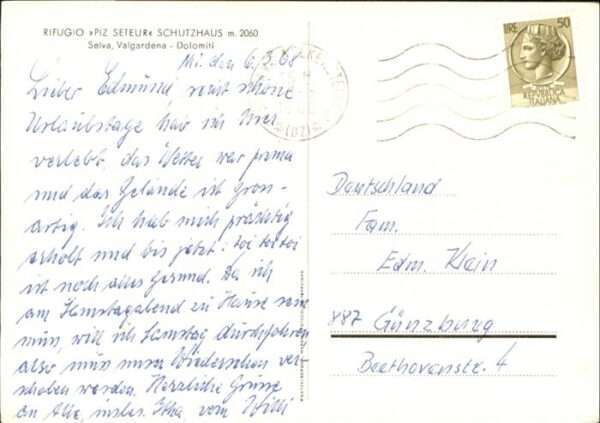 RIFUGIO »PIZ SETEUR« SCHUTZHAUS m. 2060
Selva, Valgardena - Dolomiti
Mi. den 6.3.68
Lieber Edmund, schöne
Urlaubstage hab ich hier
verlebt, das Wetter war prima
und das Gelände ist gross-
artig. Ich hab mich prächtig
erholt und bis jetzt: toi toi toi
ist noch alles gesund. Da ich
am Samstagabend zu Hause sein
muss, will ich Samstag durchfahren
also muss unser Wiedersehen ver-
schoben werden. Herzliche Grüsse
an Alle, insbes. vom Willi
LIRE 50
REPUBBLICA
ITALIANA
Deutschland
Fam.
Edm. Klein
887 Günzburg
Beethovenstr. 4